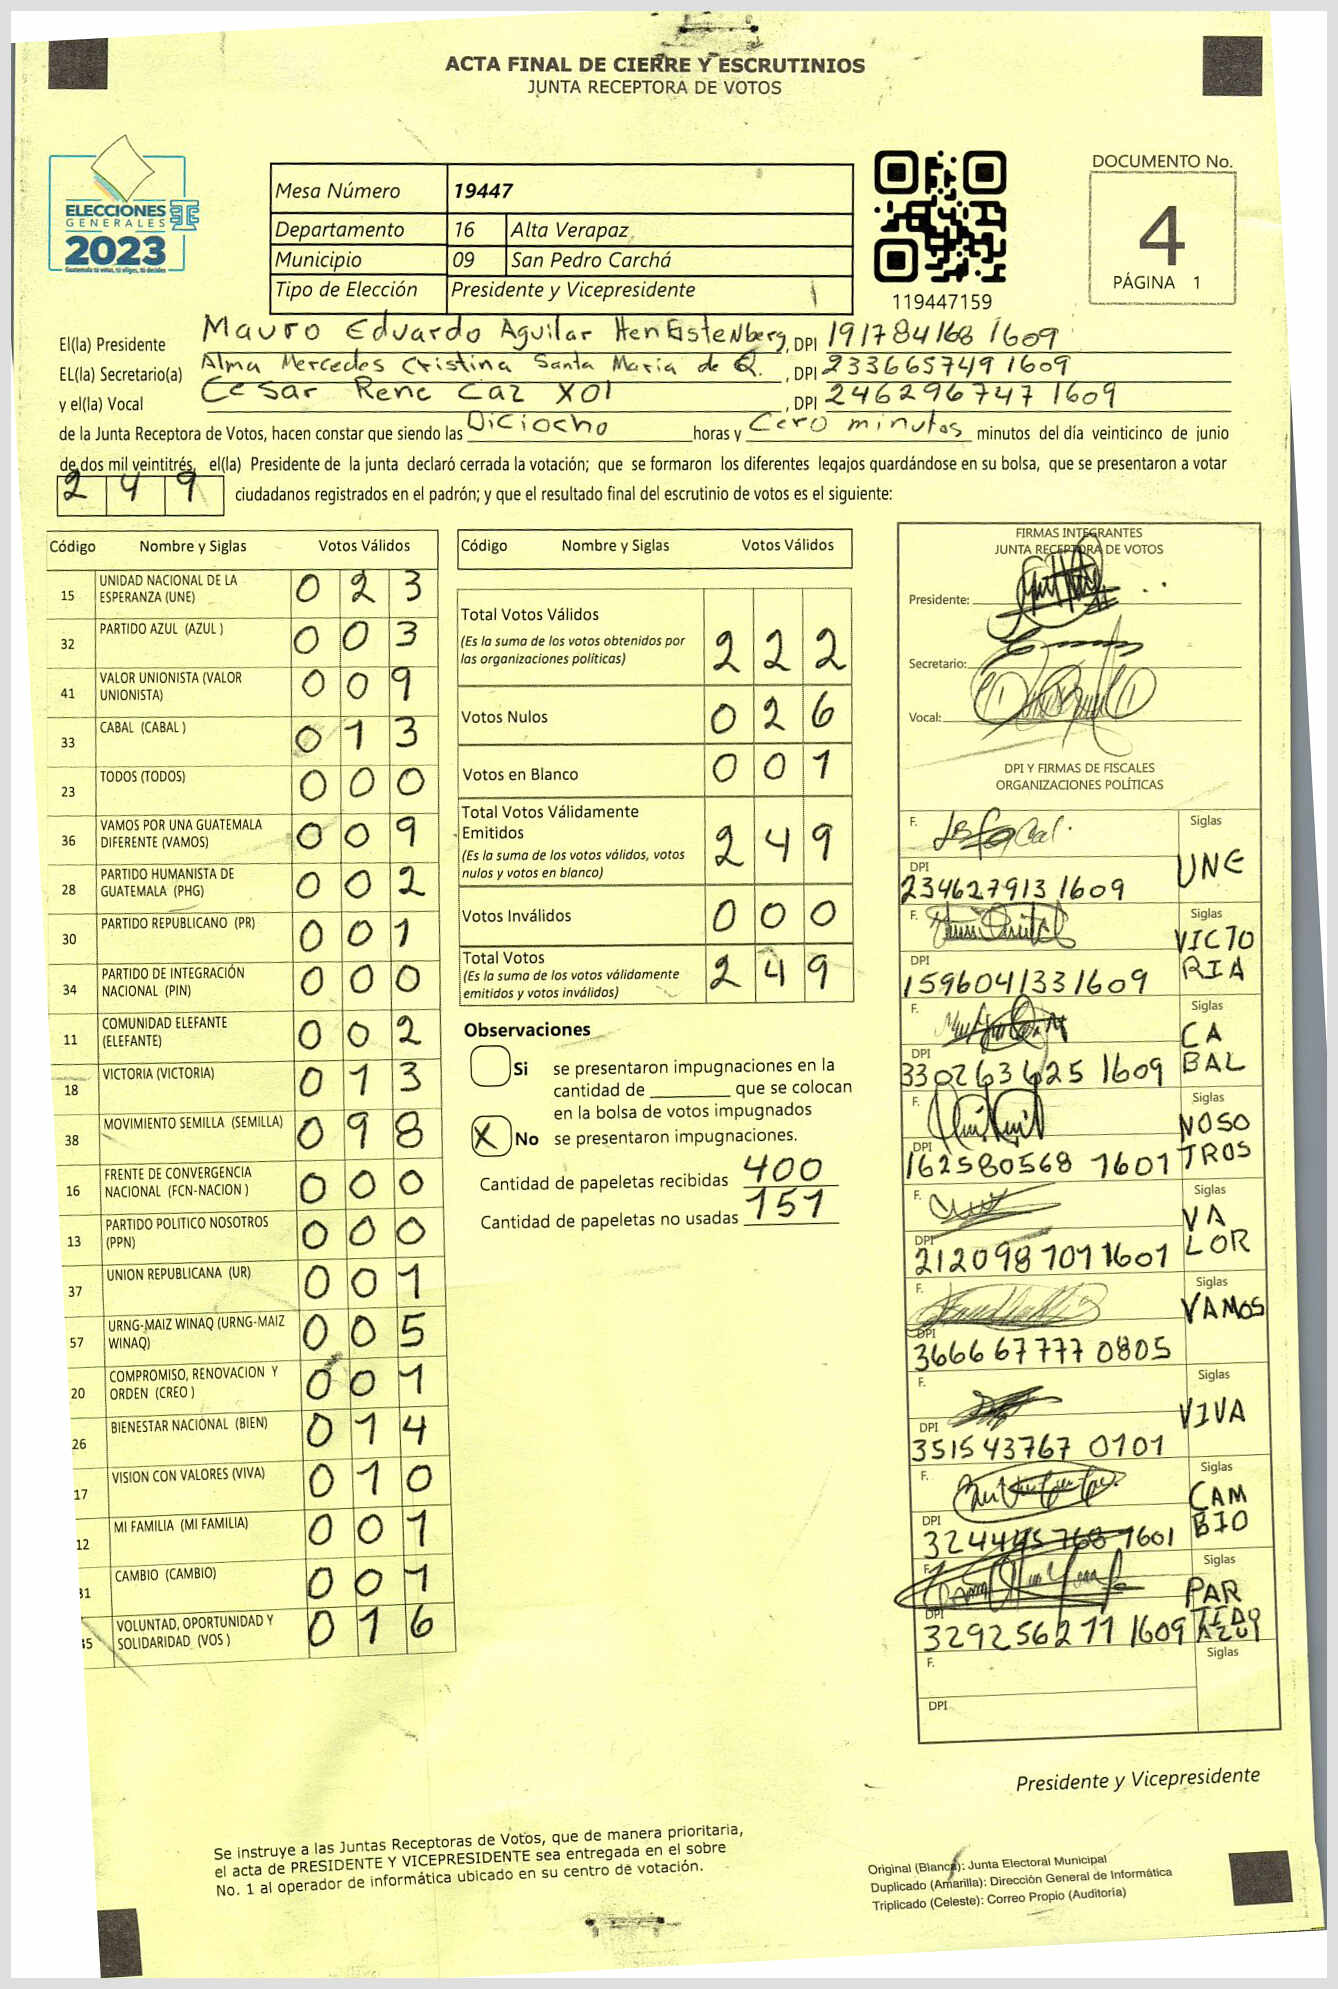 ACTA FINAL DE CIERRE Y ESCRUTINIOS
JUNTA RECEPTORA DE VOTOS
ELECCIONES
GENERALES
2023
Guatemala tú votas, tú eliges, tú decides
Mesa Número 19447
Departamento 16 Alta Verapaz
Municipio 09 San Pedro Carchá
Tipo de Elección Presidente y Vicepresidente
119447159
DOCUMENTO No.
4
PÁGINA 1
El(la) Presidente Mauro Eduardo Aguilar , DPI 191784168 1609
EL(la) Secretario(a) Alma Mercedes Cristina Santa Maria de Q. , DPI 233665749 1609
y el(la) Vocal Cesar Rene Caz XOl , DPI 246296747 1609
de la Junta Receptora de Votos, hacen constar que siendo las Diciocho horas y Cero minutos minutos del día veinticinco de junio
de dos mil veintitrés, el(la) Presidente de la junta declaró cerrada la votación; que se formaron los diferentes legajos guardándose en su bolsa, que se presentaron a votar
2 4 9 ciudadanos registrados en el padrón; y que el resultado final del escrutinio de votos es el siguiente:
Código Nombre y Siglas Votos Válidos
15 UNIDAD NACIONAL DE LA ESPERANZA (UNE) 0 2 3
32 PARTIDO AZUL (AZUL ) 0 0 3
41 VALOR UNIONISTA (VALOR UNIONISTA) 0 0 9
33 CABAL (CABAL ) 0 1 3
23 TODOS (TODOS) 0 0 0
36 VAMOS POR UNA GUATEMALA DIFERENTE (VAMOS) 0 0 9
28 PARTIDO HUMANISTA DE GUATEMALA (PHG) 0 0 2
30 PARTIDO REPUBLICANO (PR) 0 0 1
34 PARTIDO DE INTEGRACIÓN NACIONAL (PIN) 0 0 0
11 COMUNIDAD ELEFANTE (ELEFANTE) 0 0 2
18 VICTORIA (VICTORIA) 0 1 3
38 MOVIMIENTO SEMILLA (SEMILLA) 0 9 8
16 FRENTE DE CONVERGENCIA NACIONAL (FCN-NACION ) 0 0 0
13 PARTIDO POLITICO NOSOTROS (PPN) 0 0 0
37 UNION REPUBLICANA (UR) 0 0 1
57 URNG-MAIZ WINAQ (URNG-MAIZ WINAQ) 0 0 5
20 COMPROMISO, RENOVACION Y ORDEN (CREO ) 0 0 1
26 BIENESTAR NACIONAL (BIEN) 0 1 4
17 VISION CON VALORES (VIVA) 0 1 0
12 MI FAMILIA (MI FAMILIA) 0 0 1
31 CAMBIO (CAMBIO) 0 0 1
35 VOLUNTAD, OPORTUNIDAD Y SOLIDARIDAD (VOS ) 0 1 6
Código Nombre y Siglas Votos Válidos
Total Votos Válidos
(Es la suma de los votos obtenidos por
las organizaciones políticas) 2 2 2
Votos Nulos 0 2 6
Votos en Blanco 0 0 1
Total Votos Válidamente
Emitidos
(Es la suma de los votos válidos, votos
nulos y votos en blanco) 2 4 9
Votos Inválidos 0 0 0
Total Votos
(Es la suma de los votos válidamente
emitidos y votos inválidos) 2 4 9
Observaciones
Si se presentaron impugnaciones en la
cantidad de ________ que se colocan
en la bolsa de votos impugnados
X No se presentaron impugnaciones.
Cantidad de papeletas recibidas 400
Cantidad de papeletas no usadas 151
FIRMAS INTEGRANTES
JUNTA RECEPTORA DE VOTOS
Presidente:
Secretario:
Vocal:
DPI Y FIRMAS DE FISCALES
ORGANIZACIONES POLÍTICAS
F. Siglas
DPI UNE
234627913 1609
F. Siglas
DPI VICTO
159604133 1609 RIA
F. Siglas
DPI CA
330263625 1609 BAL
F. Siglas
DPI NOSO
162580568 1601 TROS
F. Siglas
DPI VA
212098701 1601 LOR
F. Siglas
DPI VAMOS
366667777 0805
F. Siglas
DPI VIVA
351543767 0101
F. Siglas
DPI CAM
324445768 1601 BIO
F. Siglas
DPI PAR
329256271 1609 TIDO
AZUl
F. Siglas
DPI
Presidente y Vicepresidente
Se instruye a las Juntas Receptoras de Votos, que de manera prioritaria,
el acta de PRESIDENTE Y VICEPRESIDENTE sea entregada en el sobre
No. 1 al operador de informática ubicado en su centro de votación.
Original (Blanca): Junta Electoral Municipal
Duplicado (Amarilla): Dirección General de Informática
Triplicado (Celeste): Correo Propio (Auditoría)